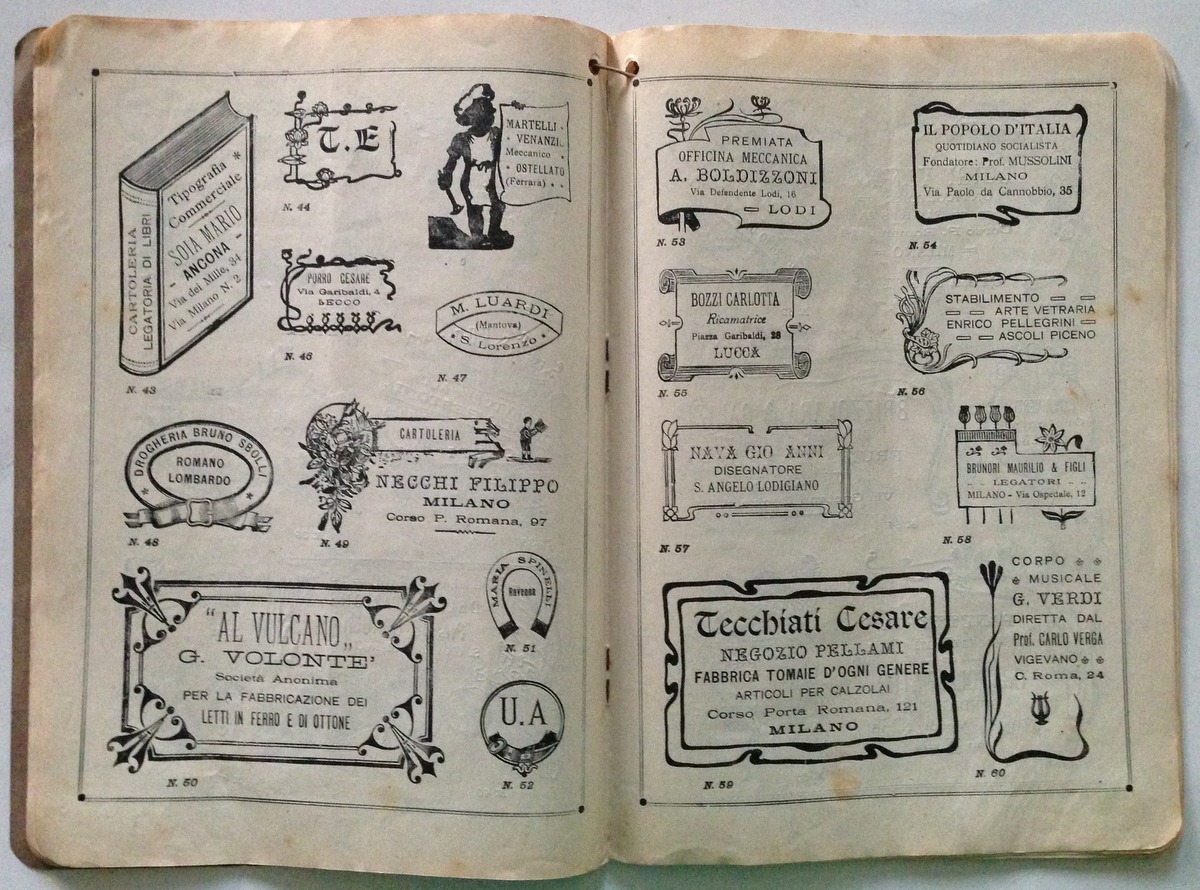 CARTOLERIA
LEGATORIA DI LIBRI
Tipografia
Commerciale
SOIA MARIO
- ANCONA -
Via dei Mille, 34
Via Milano N. 2
N. 43
T. E
N. 44
MARTELLI
VENANZIO
Meccanico
OSTELLATO
(Ferrara)
PORRO CESARE
Via Garibaldi, 4
LECCO
N. 46
M. LUARDI
(Mantova)
S. Lorenzo
N. 47
DROGHERIA BRUNO SBOLLI
ROMANO
LOMBARDO
N. 48
CARTOLERIA
NECCHI FILIPPO
MILANO
Corso P. Romana, 97
N. 49
"AL VULCANO„
G. VOLONTE'
Società Anonima
PER LA FABBRICAZIONE DEI
LETTI IN FERRO E DI OTTONE
N. 50
MARIA SPINELLI
Ravenna
N. 51
U.A
N. 52
PREMIATA
OFFICINA MECCANICA
A. BOLDIZZONI
Via Defendente Lodi, 16
LODI
N. 53
IL POPOLO D'ITALIA
QUOTIDIANO SOCIALISTA
Fondatore: Prof. MUSSOLINI
MILANO
Via Paolo da Cannobbio, 35
N. 54
BOZZI CARLOTTA
Ricamatrice
Piazza Garibaldi, 28
LUCCA
N. 55
STABILIMENTO
ARTE VETRARIA
ENRICO PELLEGRINI
ASCOLI PICENO
N. 56
NAVA GIO ANNI
DISEGNATORE
S. ANGELO LODIGIANO
N. 57
BRUNORI MAURILIO & FIGLI
LEGATORI
MILANO - Via Ospedale, 12
N. 58
Tecchiati Cesare
NEGOZIO PELLAMI
FABBRICA TOMAIE D'OGNI GENERE
ARTICOLI PER CALZOLAI
Corso Porta Romana, 121
MILANO
N. 59
CORPO
MUSICALE
G. VERDI
DIRETTA DAL
Prof. CARLO VERGA
VIGEVANO
C. Roma, 24
N. 60